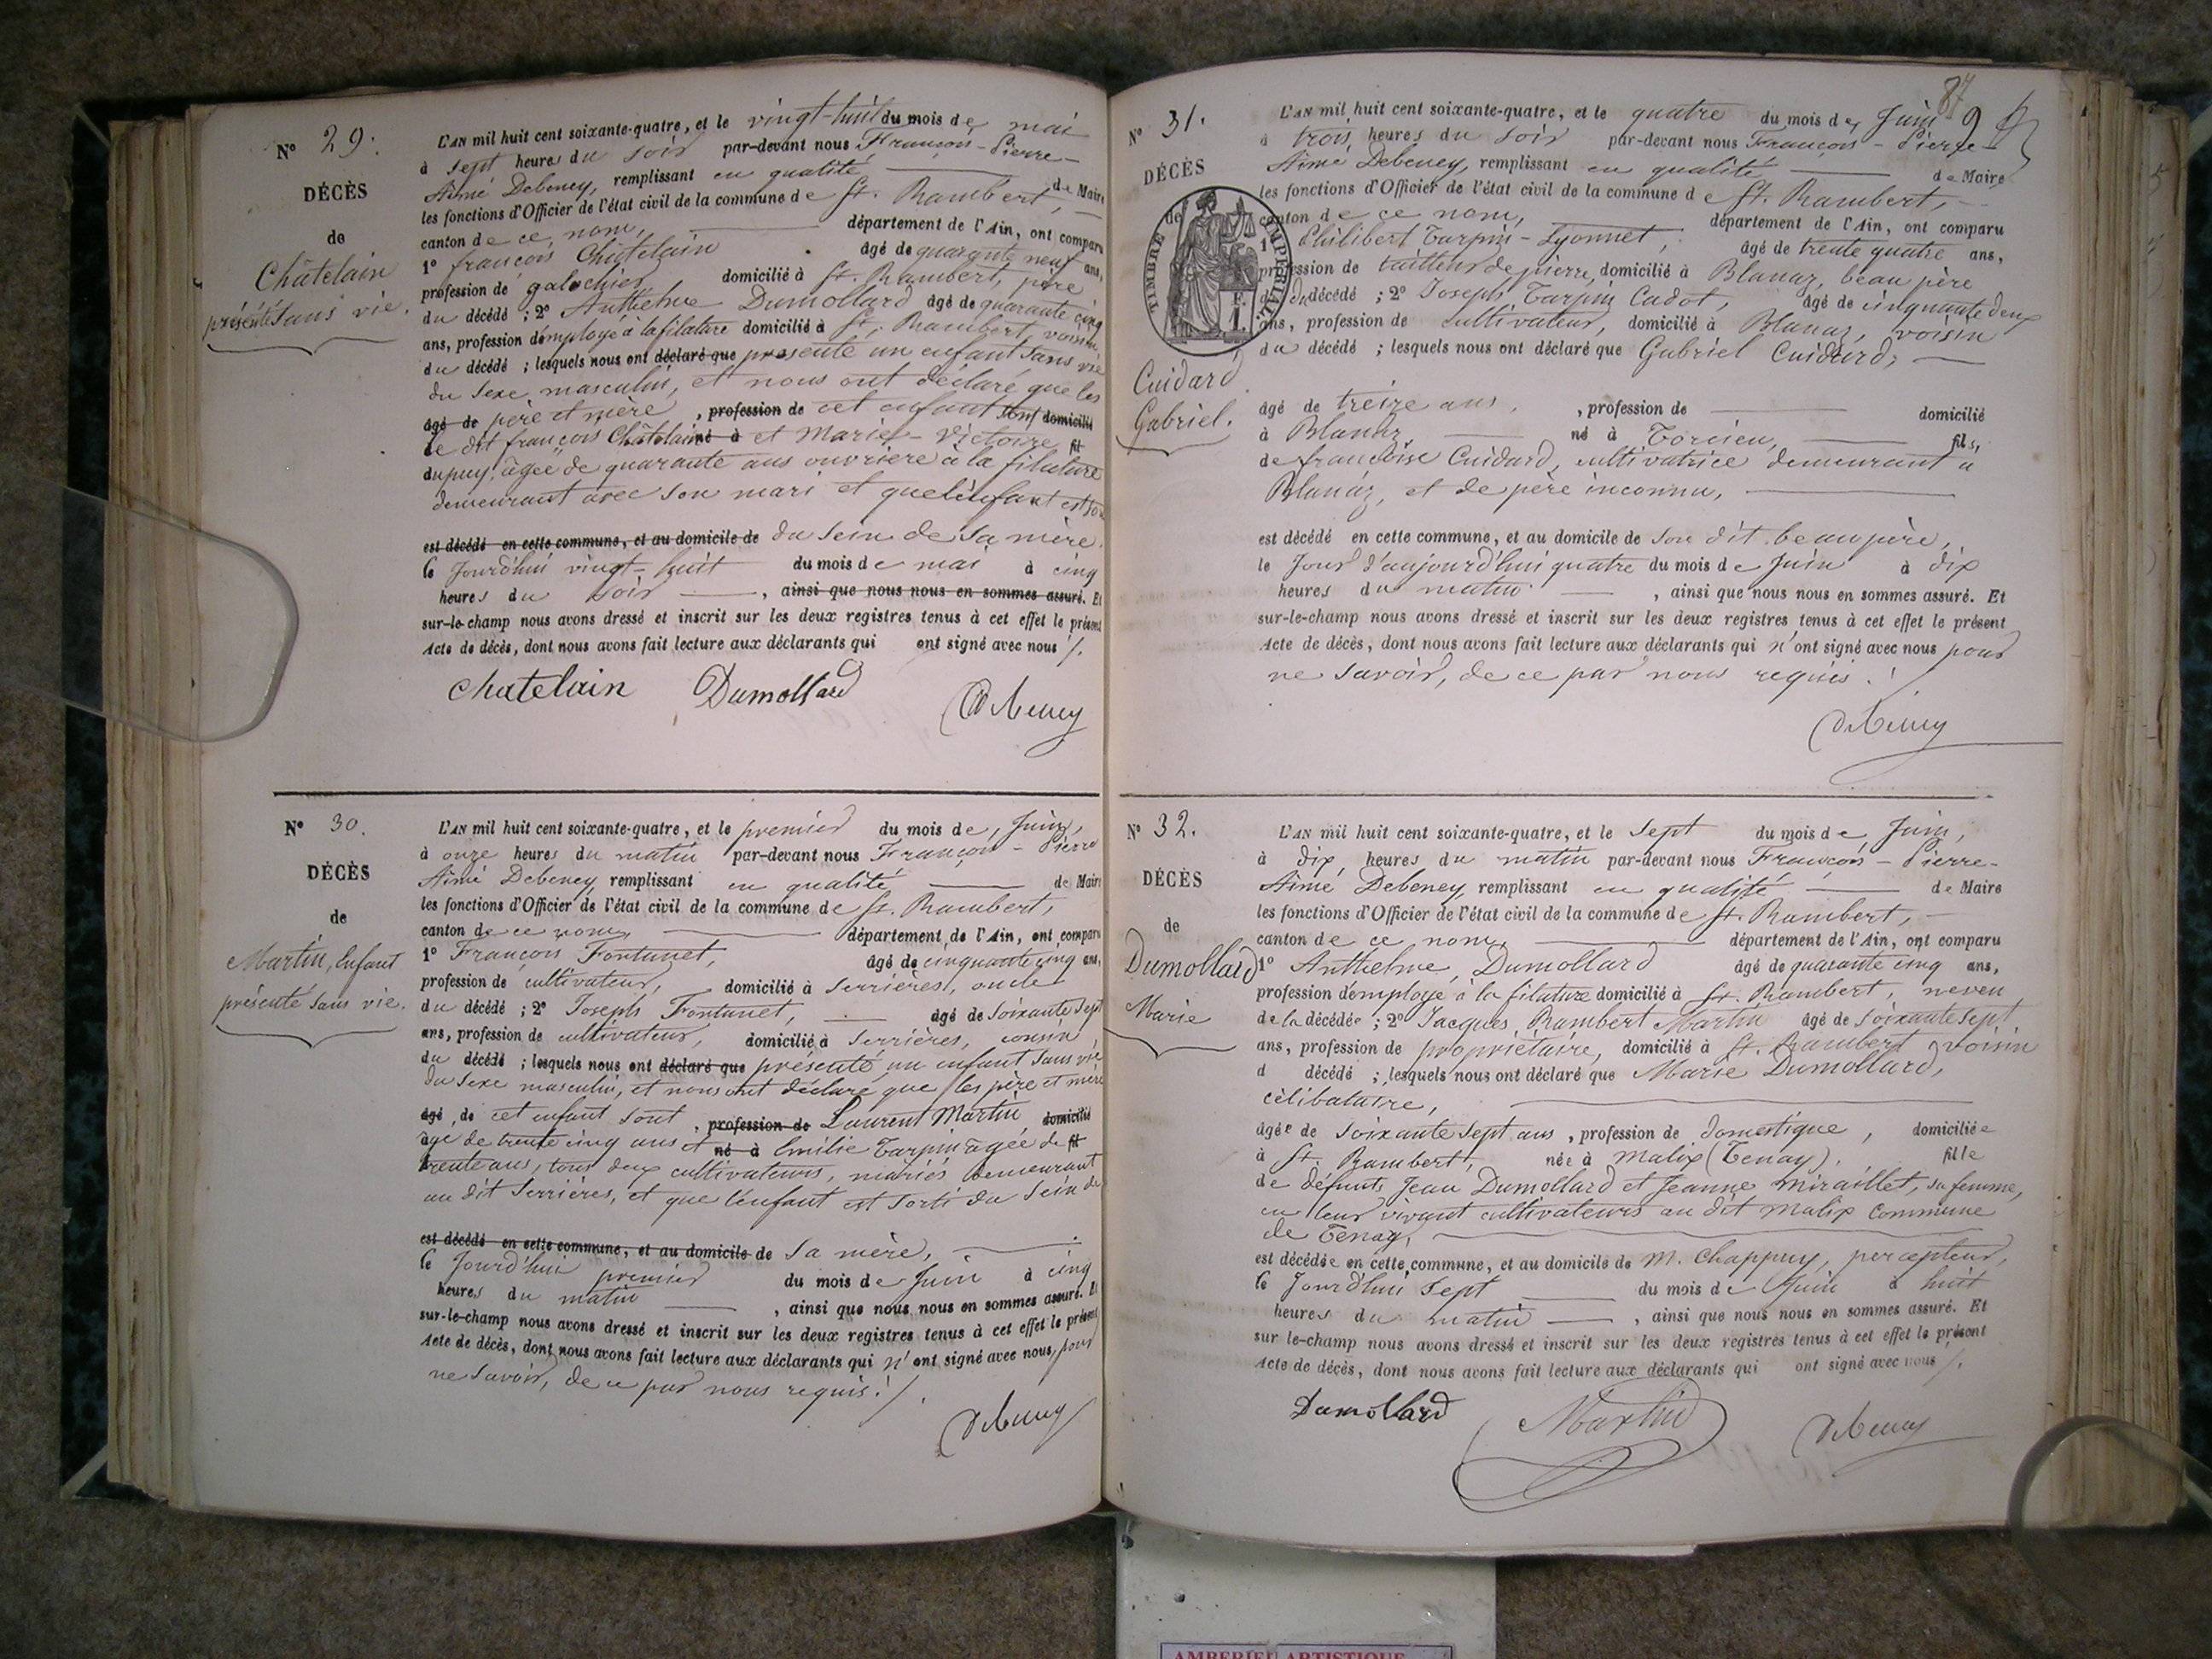 N° 29.
DÉCÈS
de
Châtelain
présenté sans vie.
L'AN mil huit cent soixante-quatre, et le vingt-huit du mois de mai
à sept heures du soir par-devant nous François-Pierre-
Aimé Debeney, remplissant en qualité de Maire
les fonctions d'Officier de l'état civil de la commune de St. Rambert,
canton de ce nom, département de l'Ain, ont comparu
1° françois Châtelain âgé de quarante neuf ans,
profession de galochier domicilié à St. Rambert, père
du décédé ; 2° Anthelme Dumollard âgé de quarante cinq
ans, profession d'employé à la filature domicilié à St. Rambert voisin
du décédé ; lesquels nous ont déclaré que présenté un enfant sans vie
du sexe masculin, et nous ont déclaré que les
âgé de père et mère , profession de cet enfant sont domicilié
le dit françois Châtelain né à et Marie-Victoire fil
dupuy, âgée de quarante ans ouvrière à la filature
demeurant avec son mari et que l'enfant est
est décédé en cette commune, et au domicile de du sein de sa mère.
le jourd'hui vingt-huit du mois de mai à cinq
heures du soir , ainsi que nous nous en sommes assuré. Et
sur-le-champ nous avons dressé et inscrit sur les deux registres tenus à cet effet le présent
Acte de décès, dont nous avons fait lecture aux déclarants qui ont signé avec nous /.
Chatelain Dumollard Debeney
N° 30.
DÉCÈS
de
Martin, Enfant
présenté sans vie.
L'AN mil huit cent soixante-quatre, et le premier du mois de Juin,
à onze heures du matin par-devant nous François-Pierre
Aimé Debeney, remplissant en qualité de Maire
les fonctions d'Officier de l'état civil de la commune de St. Rambert,
canton de ce nom, département de l'Ain, ont comparu
1° François Fontanet, âgé de cinquante cinq ans,
profession de cultivateur, domicilié à Serrières, oncle
du décédé ; 2° Joseph Fontanet, âgé de soixante sept
ans, profession de cultivateur, domicilié à Serrières, cousin
du décédé ; lesquels nous ont déclaré que présenté un enfant sans vie
du sexe masculin, et nous ont déclaré que les père et mère
âgé de cet enfant sont , profession de Laurent Martin domicilié
âgé de trente cinq ans et né à Emilie Tarpin âgée de fil
trente ans, tous deux cultivateurs, mariés demeurant
au dit Serrières, et que l'enfant est sorti du sein de
est décédé en cette commune, et au domicile de sa mère,
le jourd'hui premier du mois de Juin à cinq
heures du matin , ainsi que nous nous en sommes assuré. Et
sur-le-champ nous avons dressé et inscrit sur les deux registres tenus à cet effet le présent
Acte de décès, dont nous avons fait lecture aux déclarants qui n'ont signé avec nous pour
ne savoir, de ce par nous requis. /.
Debeney
87
N° 31.
DÉCÈS
TIMBRE IMPERIAL
de
Cuidard
Gabriel.
L'AN mil huit cent soixante-quatre, et le quatre du mois de Juin
à trois heures du soir par-devant nous François-Pierre-
Aimé Debeney, remplissant en qualité de Maire
les fonctions d'Officier de l'état civil de la commune de St. Rambert,
canton de ce nom, département de l'Ain, ont comparu
1° Philibert Tarpin-Lyonnet, âgé de trente quatre ans,
profession de tailleur de pierre, domicilié à Blanaz, beau père
du décédé ; 2° Joseph Tarpin Cadot, âgé de cinquante deux
ans, profession de cultivateur, domicilié à Blanaz, voisin
du décédé ; lesquels nous ont déclaré que Gabriel Cuidard,
âgé de treize ans, , profession de domicilié
à Blanaz né à Torcieu, fils,
de françoise Cuidard, cultivatrice demeurant à
Blanaz, et de père inconnu,
est décédé en cette commune, et au domicile de son dit beau père,
le jour d'aujourd'hui quatre du mois de Juin à dix
heures du matin , ainsi que nous nous en sommes assuré. Et
sur-le-champ nous avons dressé et inscrit sur les deux registres tenus à cet effet le présent
Acte de décès, dont nous avons fait lecture aux déclarants qui n'ont signé avec nous pour
ne savoir, de ce par nous requis. /
Debeney
N° 32.
DÉCÈS
de
Dumollard
Marie
L'AN mil huit cent soixante-quatre, et le sept du mois de Juin,
à dix heures du matin par-devant nous François-Pierre-
Aimé Debeney, remplissant en qualité de Maire
les fonctions d'Officier de l'état civil de la commune de St. Rambert,
canton de ce nom, département de l'Ain, ont comparu
1° Anthelme Dumollard âgé de quarante cinq ans,
profession d'employé à la filature domicilié à St. Rambert, neveu
de la décédée ; 2° Jacques Rambert Martin âgé de soixante sept
ans, profession de propriétaire, domicilié à St. Rambert voisin
d décédé ; lesquels nous ont déclaré que Marie Dumollard,
célibataire,
âgée de soixante sept ans , profession de domestique, domiciliée
à St. Rambert, née à Malix (Tenay), fille
de défunts Jean Dumollard et Jeanne Miraillet, sa femme,
en leur vivant cultivateurs au dit Malix commune
de Tenay,
est décédée en cette commune, et au domicile de M. Chappuy, percepteur,
le jourd'hui sept du mois de Juin à huit
heures du matin , ainsi que nous nous en sommes assuré. Et
sur le-champ nous avons dressé et inscrit sur les deux registres tenus à cet effet le présent
Acte de décès, dont nous avons fait lecture aux déclarants qui ont signé avec nous /.
Dumollard Martin Debeney
AMBERIEU ARTISTIQUE